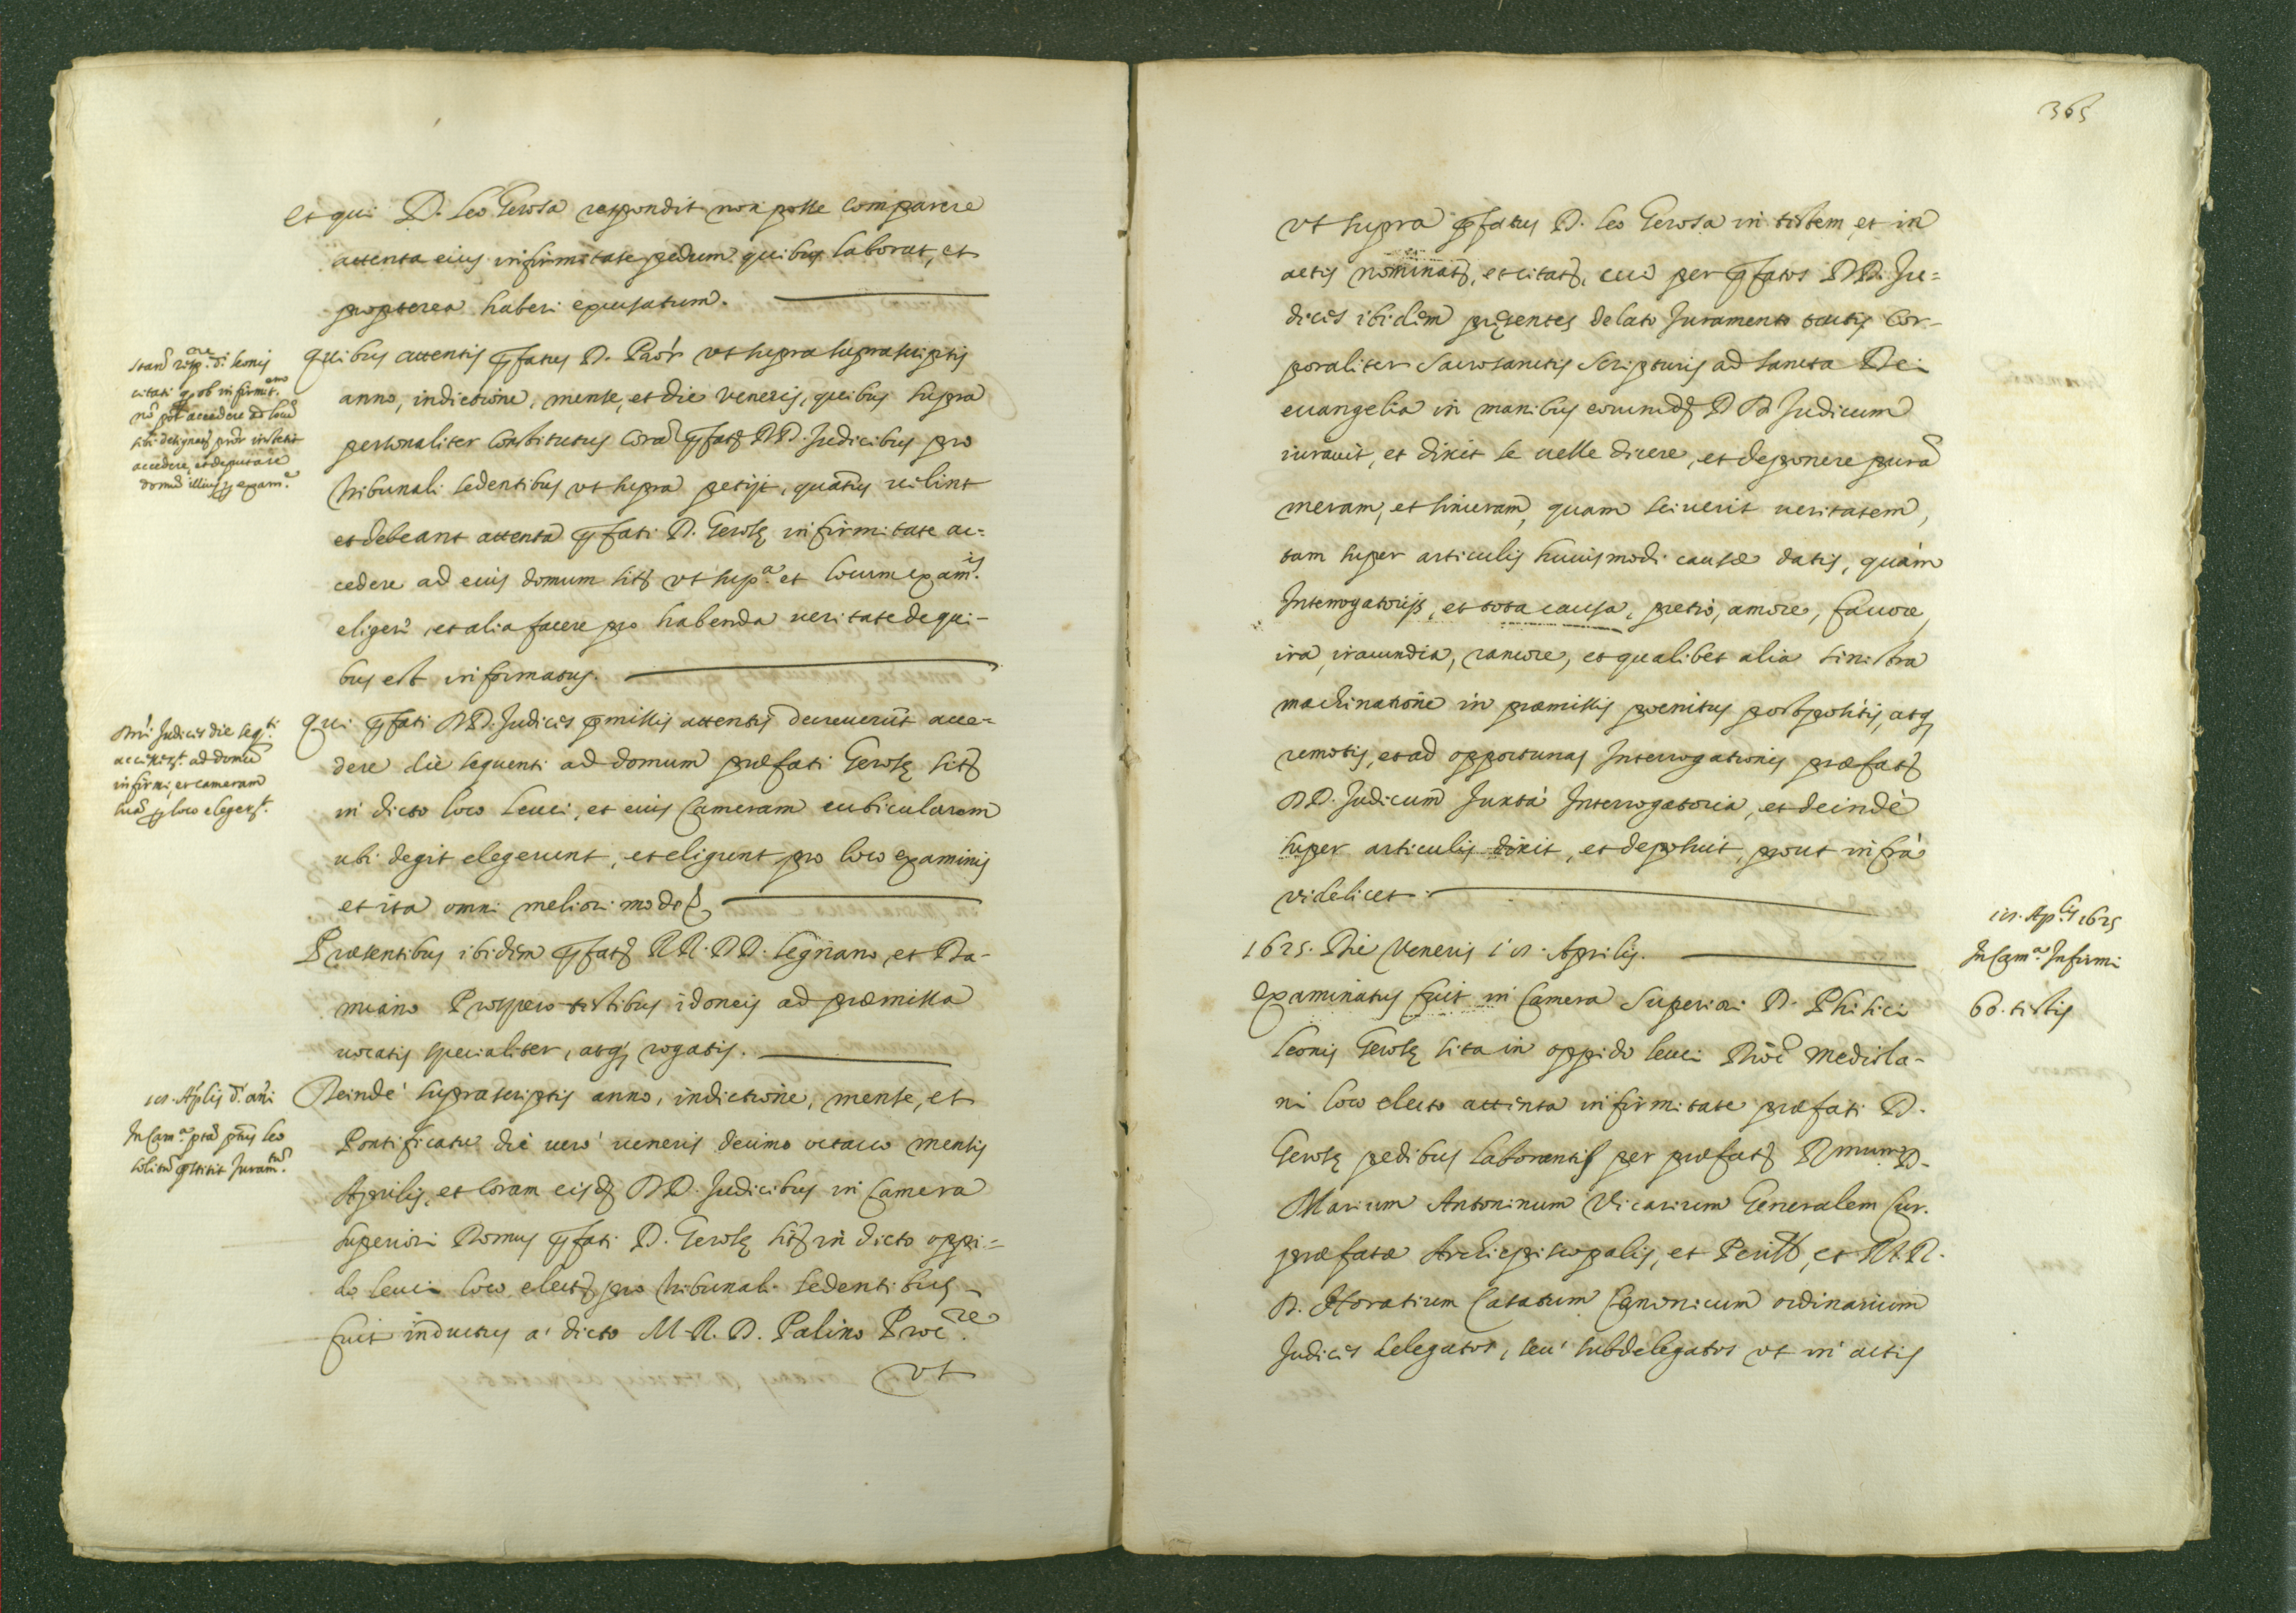 et qui D. Leo Gerosa respondit non posse comparere
attenta eius infirmitate pedum quibus laborat, et
propterea haberi excusatum.
Quibus attentis pfatus D. Paor ut supra suprascriptis
anno, indictione, mense, et die veneris, quibus supra
personaliter constitutus coram pfatis DD. Judicibus pro
tribunali sedentibus ut supra petijt, quatenus velint
et debeant attenta pfati D. Gerosę infirmitate ac=
cedere ad eius domum sitam ut supa. et locum examis.
eligere, et alia facere pro habenda veritate de qui-
bus est informatus.
Qui pfati DD. Judices pmissis attentis decreverunt acce=
dere die sequenti ad domum praefati Gerosę sitam
in dicto loco Leuci, et eius Cameram cubicularem
ubi degit elegerunt, et eligunt pro loco examinis
et ita omni meliori modo
Praesentibus ibidem pfatis RR. DD. Legnano, et Da-
miano Prospero testibus idoneis ad praemissa
vocatis specialiter, atq; rogatis.
Deinde suprascriptis anno, indictione, mense, et
Pontificatu die vero veneris decimo octavo mensis
Aprilis, et coram eisdem DD. Judicibus in Camera
superiori Domus pfati D. Gerosę sitae in dicto oppi=
do Leuci loco electo pro tribunali sedentibus
fuit inductus a dicto M. R. D. Palino Procre.
ut
stan. resp.ne di. Leonis
citati q ob infirmit.em
no pot accedere ad locu
sibi designat, pror institit
accedere, et deputare
domu illius p exam.e
Dni Judices die seq.ti
accesser.t ad domu
infirmi, et cameram
sua p loco eleger.t
18. Aplis d. ani
In Cam.a pta ptus Leo
solitu pstitit Juram.tu
365
ut supra pfatus D. Leo Gerosa in testem, et in
actis nominatus, et citatus, cui per pfatos DD. Ju=
dices ibidem pręsentes delato Juramento tactis cor-
poraliter Sacrosanctis Scripturis ad sancta Dei
evangelia in manibus eorumdem DD Judicum
iuravit, et dixit se velle dicere, et deponere puram
meram, et sinceram, quam sciverit veritatem,
tam super articulis huiusmodi causae datis, quam
Interrogatorijs, et tota causa, pretio, amore, favore,
ira, iracundia, rancore, et qualibet alia sinistra
machinatione in praemissis poenitus postpositis, atq;
remotis, et ad opportunas Interrogationes praefatorum
DD. Judicum Juxta Interrogatoria, et deinde
super articulis dixit, et deposuit, prout infra
videlicet
1625. Die Veneris 18. Aprilis.
Examinatus fuit in Camera Superiori D. Phisici
Leonis Gerosę sita in oppido Leuci Dioc Mediola-
ni loco electo attenta infirmitate praefati D.
Gerosę pedibus laborantis per praefatum Rmum D.
Marium Antoninum Vicarium Generalem Cur.
praefatae Archiepiscopalis, et M. R.
D. Horatium Catatum Canonicum ordinarium
Judices delegatos, seu subdelegatos ut in actis
18. Aplis 1625
In Cam.a Infirmi
60. testis